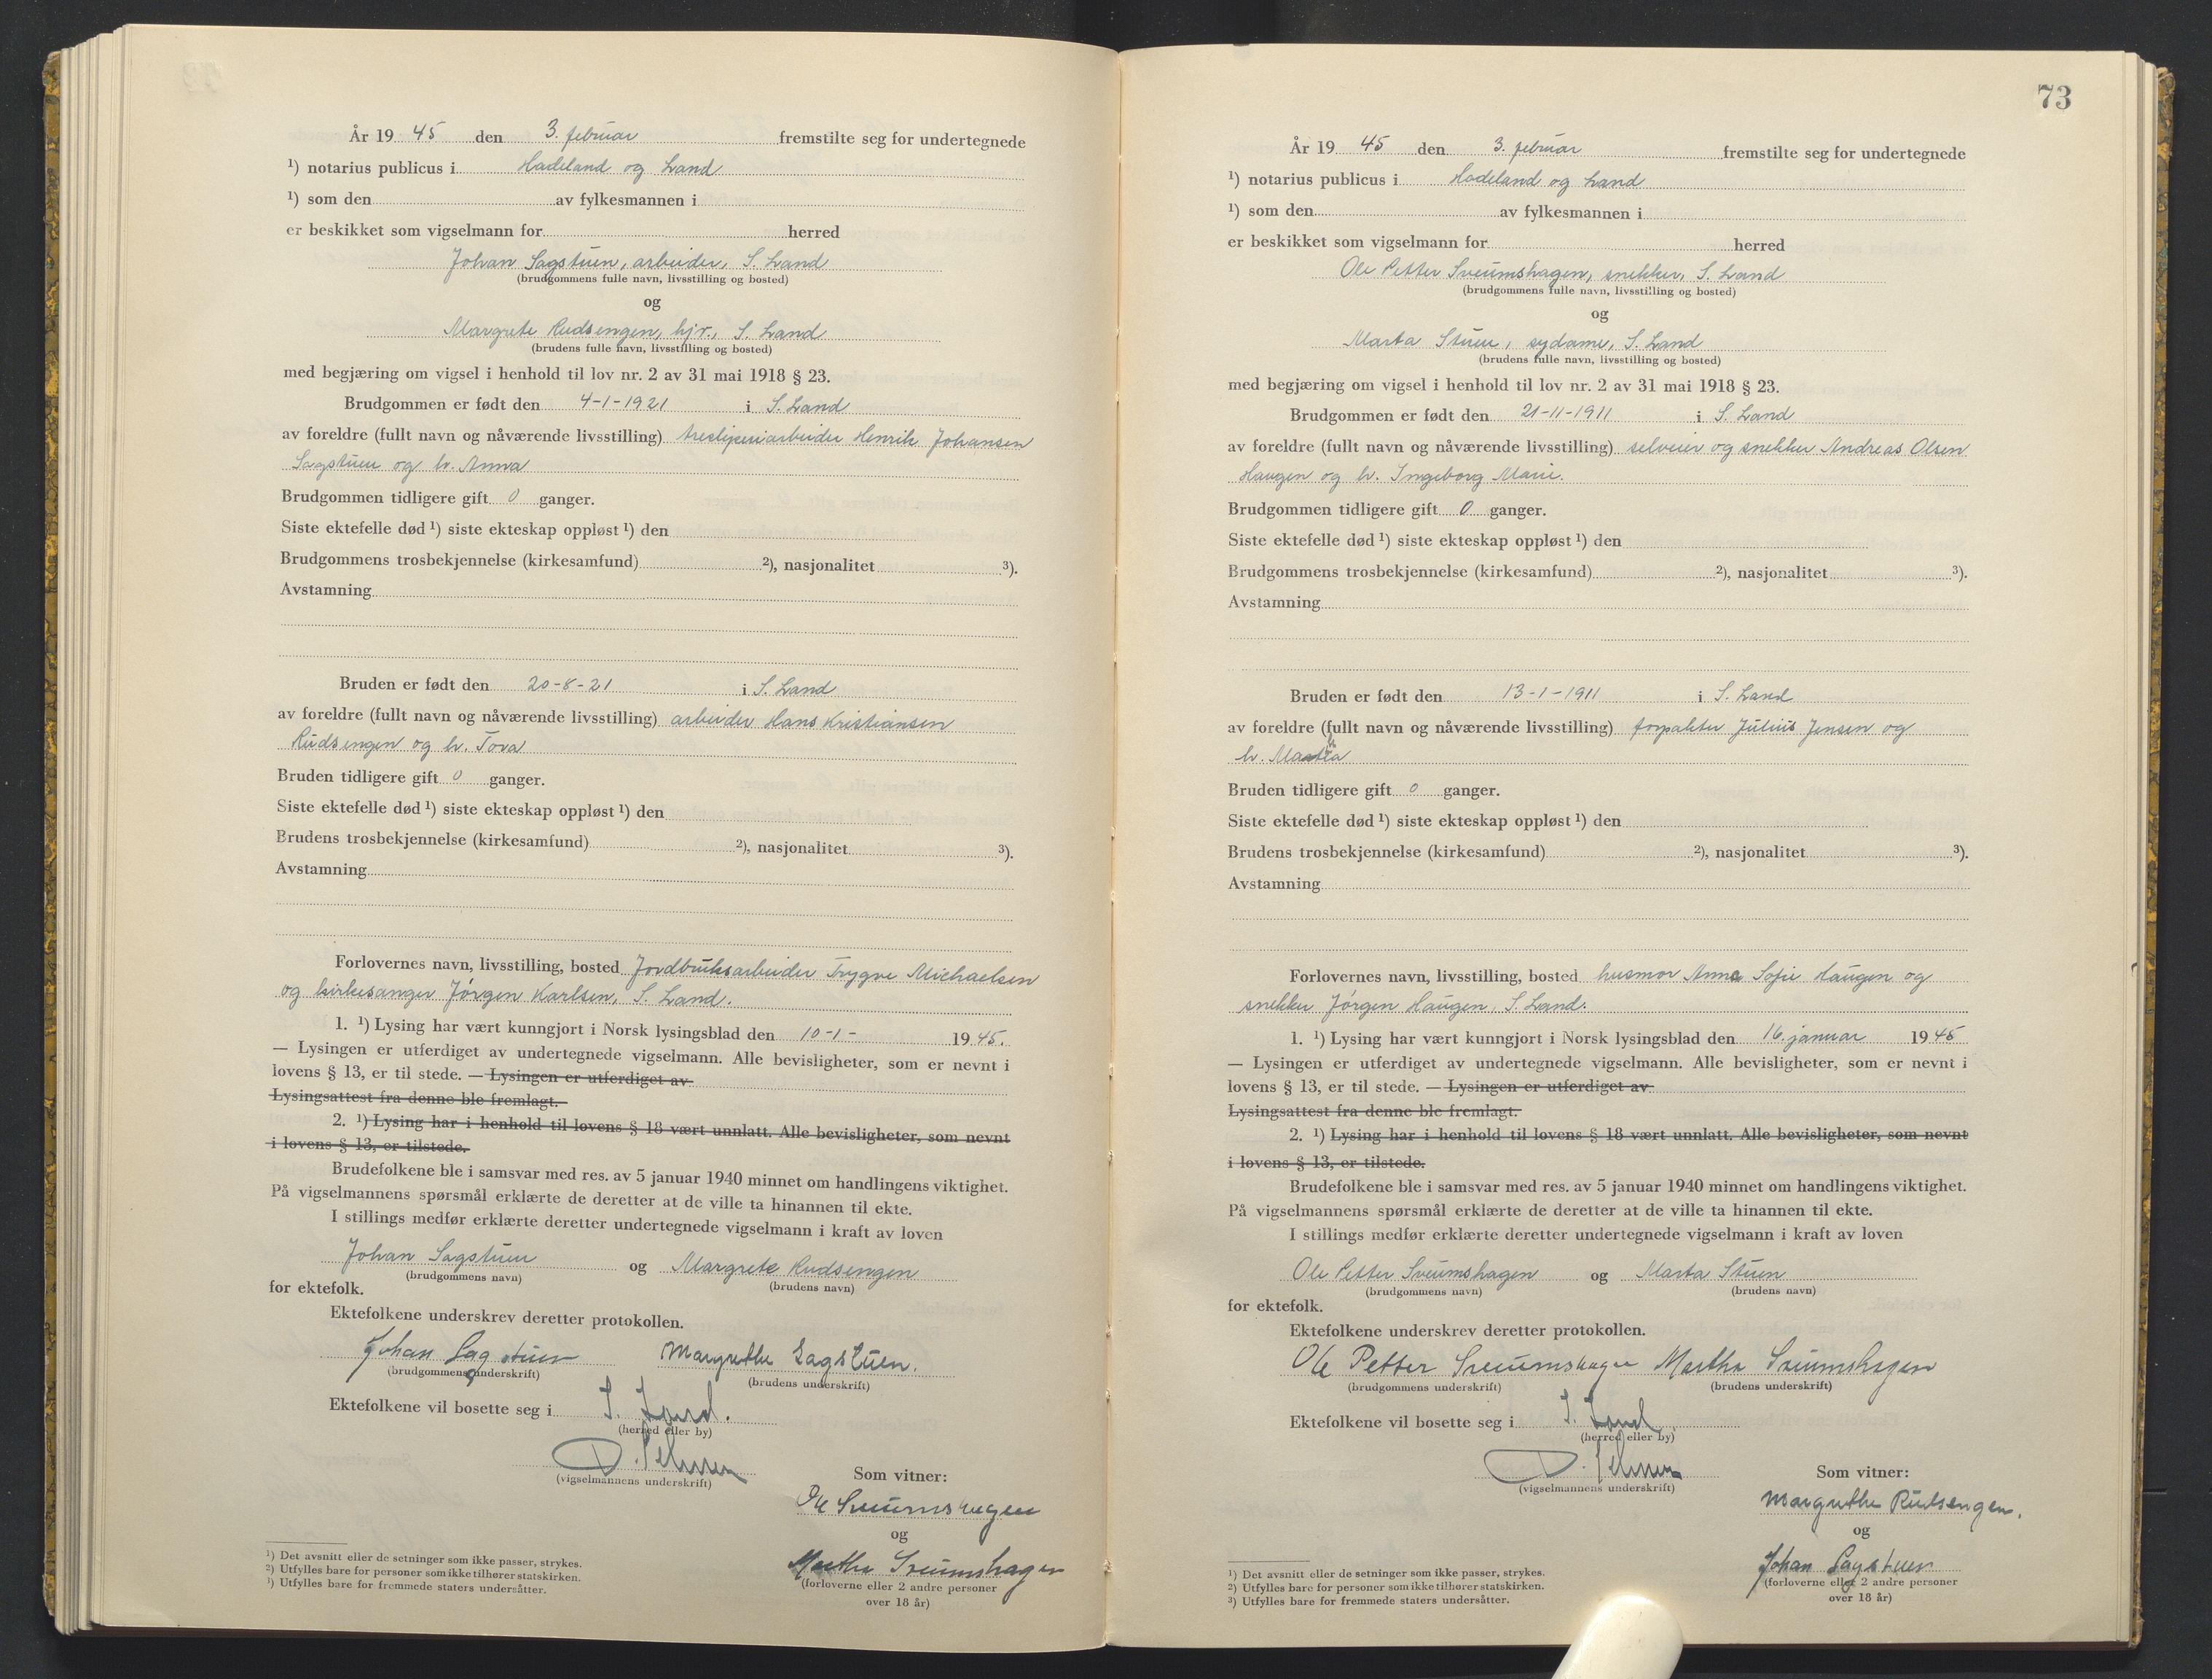 År 19 45 den 3. februar fremstilte seg for undertegnede
¹) notarius publicus i Hadeland og Land
¹) som den av fylkesmannen i
er beskikket som vigselmann for herred
Johan Sagstuen, arbeider, S. Land
(brudgommens fulle navn, livsstilling og bosted)
og
Margrete Rudsengen, hjv., S. Land
(brudens fulle navn, livsstilling og bosted)
med begjæring om vigsel i henhold til lov nr. 2 av 31 mai 1918 § 23.
Brudgommen er født den 4-1-1921 i S. Land
av foreldre (fullt navn og nåværende livsstilling) tresliperiarbeider Henrik Johansen
Sagstuen og h. Anna
Brudgommen tidligere gift 0 ganger.
Siste ektefelle død ¹) siste ekteskap oppløst ¹) den
Brudgommens trosbekjennelse (kirkesamfund) ²), nasjonalitet ³).
Avstamning
Bruden er født den 20-8-21 i S. Land
av foreldre (fullt navn og nåværende livsstilling) arbeider Hans Kristiansen
Rudsengen og h. Tova
Bruden tidligere gift 0 ganger.
Siste ektefelle død ¹) siste ekteskap oppløst ¹) den
Brudens trosbekjennelse (kirkesamfund) ²), nasjonalitet ³).
Avstamning
Forlovernes navn, livsstilling, bosted Jordbruksarbeider Trygve Michaelsen
og kirkesanger Jørgen Karlsen, S. Land.
1. ¹) Lysing har vært kunngjort i Norsk lysingsblad den 10-1- 19 45.
— Lysingen er utferdiget av undertegnede vigselmann. Alle bevisligheter, som er nevnt i
lovens § 13, er til stede. — Lysingen er utferdiget av
Lysingsattest fra denne ble fremlagt.
2. ¹) Lysing har i henhold til lovens § 18 vært unnlatt. Alle bevisligheter, som nevnt
i lovens § 13, er tilstede.
Brudefolkene ble i samsvar med res. av 5 januar 1940 minnet om handlingens viktighet.
På vigselmannens spørsmål erklærte de deretter at de ville ta hinannen til ekte.
I stillings medfør erklærte deretter undertegnede vigselmann i kraft av loven
Johan Sagstuen og Margrete Rudsengen
(brudgommens navn) (brudens navn)
for ektefolk.
Ektefolkene underskrev deretter protokollen.
Johan Sagstuen Margrethe Sagstuen.
(brudgommens underskrift) (brudens underskrift)
Ektefolkene vil bosette seg i S. Land.
(herred eller by)
(vigselmannens underskrift)
Som vitner:
Ole Sveumshagen
og
Martha Sveumshagen
(forloverne eller 2 andre personer
over 18 år)
¹) Det avsnitt eller de setninger som ikke passer, strykes.
²) Utfylles bare for personer som ikke tilhører statskirken.
³) Utfylles bare for fremmede staters undersåtter.
73
År 19 45 den 3. februar fremstilte seg for undertegnede
¹) notarius publicus i Hadeland og Land
¹) som den av fylkesmannen i
er beskikket som vigselmann for herred
Ole Petter Sveumshagen, snekker, S. Land
(brudgommens fulle navn, livsstilling og bosted)
og
Marta Stuen, sydame, S. Land
(brudens fulle navn, livsstilling og bosted)
med begjæring om vigsel i henhold til lov nr. 2 av 31 mai 1918 § 23.
Brudgommen er født den 21-11-1911 i S. Land
av foreldre (fullt navn og nåværende livsstilling) selveier og snekker Andreas Olsen
Haugen og h. Ingeborg Marie.
Brudgommen tidligere gift 0 ganger.
Siste ektefelle død ¹) siste ekteskap oppløst ¹) den
Brudgommens trosbekjennelse (kirkesamfund) ²), nasjonalitet ³).
Avstamning
Bruden er født den 13-1-1911 i S. Land
av foreldre (fullt navn og nåværende livsstilling) forpakter Julius Jensen og
h.
Bruden tidligere gift 0 ganger.
Siste ektefelle død ¹) siste ekteskap oppløst ¹) den
Brudens trosbekjennelse (kirkesamfund) ²), nasjonalitet ³).
Avstamning
Forlovernes navn, livsstilling, bosted husmor Anna Sofie Haugen og
snekker Jørgen Haugen, S. Land.
1. ¹) Lysing har vært kunngjort i Norsk lysingsblad den 16. januar 19 45
— Lysingen er utferdiget av undertegnede vigselmann. Alle bevisligheter, som er nevnt i
lovens § 13, er til stede. — Lysingen er utferdiget av
Lysingsattest fra denne ble fremlagt.
2. ¹) Lysing har i henhold til lovens § 18 vært unnlatt. Alle bevisligheter, som nevnt
i lovens § 13, er tilstede.
Brudefolkene ble i samsvar med res. av 5 januar 1940 minnet om handlingens viktighet.
På vigselmannens spørsmål erklærte de deretter at de ville ta hinannen til ekte.
I stillings medfør erklærte deretter undertegnede vigselmann i kraft av loven
Ole Petter Sveumshagen og Marta Stuen
(brudgommens navn) (brudens navn)
for ektefolk.
Ektefolkene underskrev deretter protokollen.
Ole Petter Sveumshagen Martha Sveumshagen
(brudgommens underskrift) (brudens underskrift)
Ektefolkene vil bosette seg i S. Land
(herred eller by)
(vigselmannens underskrift)
Som vitner:
Margrethe Rudsengen.
og
Johan Sagstuen
(forloverne eller 2 andre personer
over 18 år)
¹) Det avsnitt eller de setninger som ikke passer, strykes.
²) Utfylles bare for personer som ikke tilhører statskirken.
³) Utfylles bare for fremmede staters undersåtter.